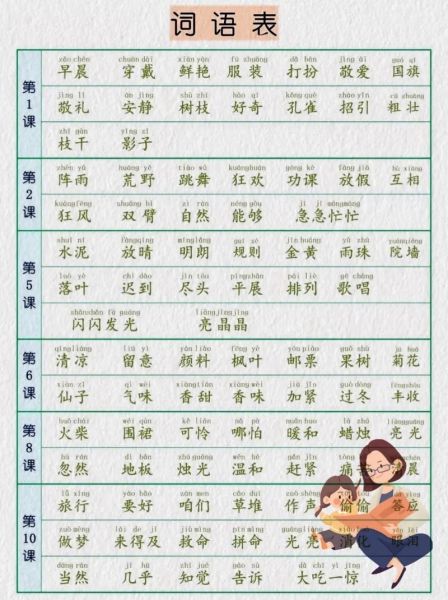 词语表
第1课
zǎo chén chuān dài xiān yàn fú zhuāng dǎ bàn jìng ài guó qí
早晨 穿戴 鲜艳 服装 打扮 敬爱 国旗
jìng lǐ ān jìng shù zhī hào qí kǒng què zhāo yǐn cū zhuàng
敬礼 安静 树枝 好奇 孔雀 招引 粗壮
zhī gàn yǐng zi
枝干 影子
第2课
zhèn yǔ huāng yě tiào wǔ kuánghuān gōng kè fàng jià hù xiāng
阵雨 荒野 跳舞 狂欢 功课 放假 互相
kuángfēng shuāng bì zì rán néng gòu jí jí máng máng
狂风 双臂 自然 能够 急急忙忙
第5课
shuǐ ní fàngqíng mínglǎng guī zé jīn huáng yǔ zhū yuànqiáng
水泥 放晴 明朗 规则 金黄 雨珠 院墙
luò yè chí dào jìn tóu píngzhǎn pái liè gē chàng
落叶 迟到 尽头 平展 排列 歌唱
shǎnshǎn fā guāng liàngjīngjīng
闪闪发光 亮晶晶
第6课
qīngliáng liú yì yán liào fēng yè yóu piào guǒ shù jú huā
清凉 留意 颜料 枫叶 邮票 果树 菊花
xiān zǐ qì wèi xiāngtián xiāng wèi jiā jǐn guò dōng fēngshōu
仙子 气味 香甜 香味 加紧 过冬 丰收
第8课
huǒ chái wéi qún kě lián nǎ pà nuǎn huo là zhú liàng guāng
火柴 围裙 可怜 哪怕 暖和 蜡烛 亮光
hū rán dì bǎn zhú guāng wēn hé gǎn jǐn
忽然 地板 烛光 温和 赶紧 痛 晨
第10课
lǚ xíng yào hǎo zán men cǎo duī zuò shēng tōu tōu dā ying
旅行 要好 咱们 草堆 作声 偷偷 答应
zuò mèng lái de jí jiù mìng pīn mìng guāngliàng xiāo huà yǎn lèi
做梦 来得及 救命 拼命 光亮 消化 眼泪
dāng rán jī hū zhī jué gào su dà chī yì jīng
当然 几乎 知觉 告诉 大吃一惊